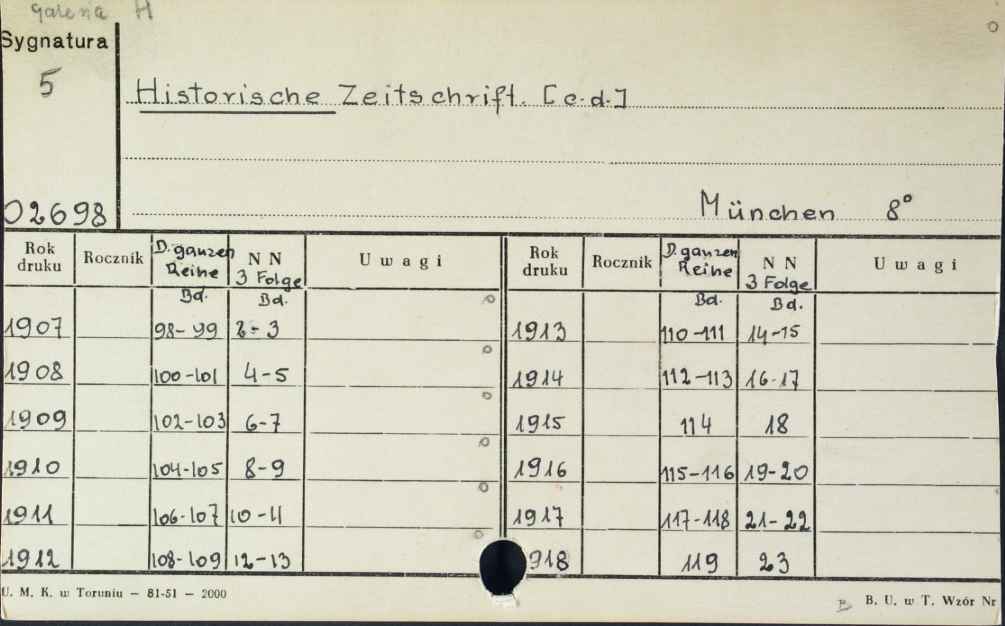 galeria H
Sygnatura
5
Historische Zeitschrift. [c.d.]
02698
München 8°
Rok druku Rocznik D. ganzen Reihe Bd. N N 3 Folge Bd. Uwagi Rok druku Rocznik D. ganzen Reihe Bd. N N 3 Folge Bd. Uwagi
1907 98-99 2-3 1913 110-111 14-15
1908 100-101 4-5 1914 112-113 16-17
1909 102-103 6-7 1915 114 18
1910 104-105 8-9 1916 115-116 19-20
1911 106-107 10-11 1917 117-118 21-22
1912 108-109 12-13 918 119 23
U. M. K. w Toruniu — 81-51 — 2000
B. U. w T. Wzór Nr